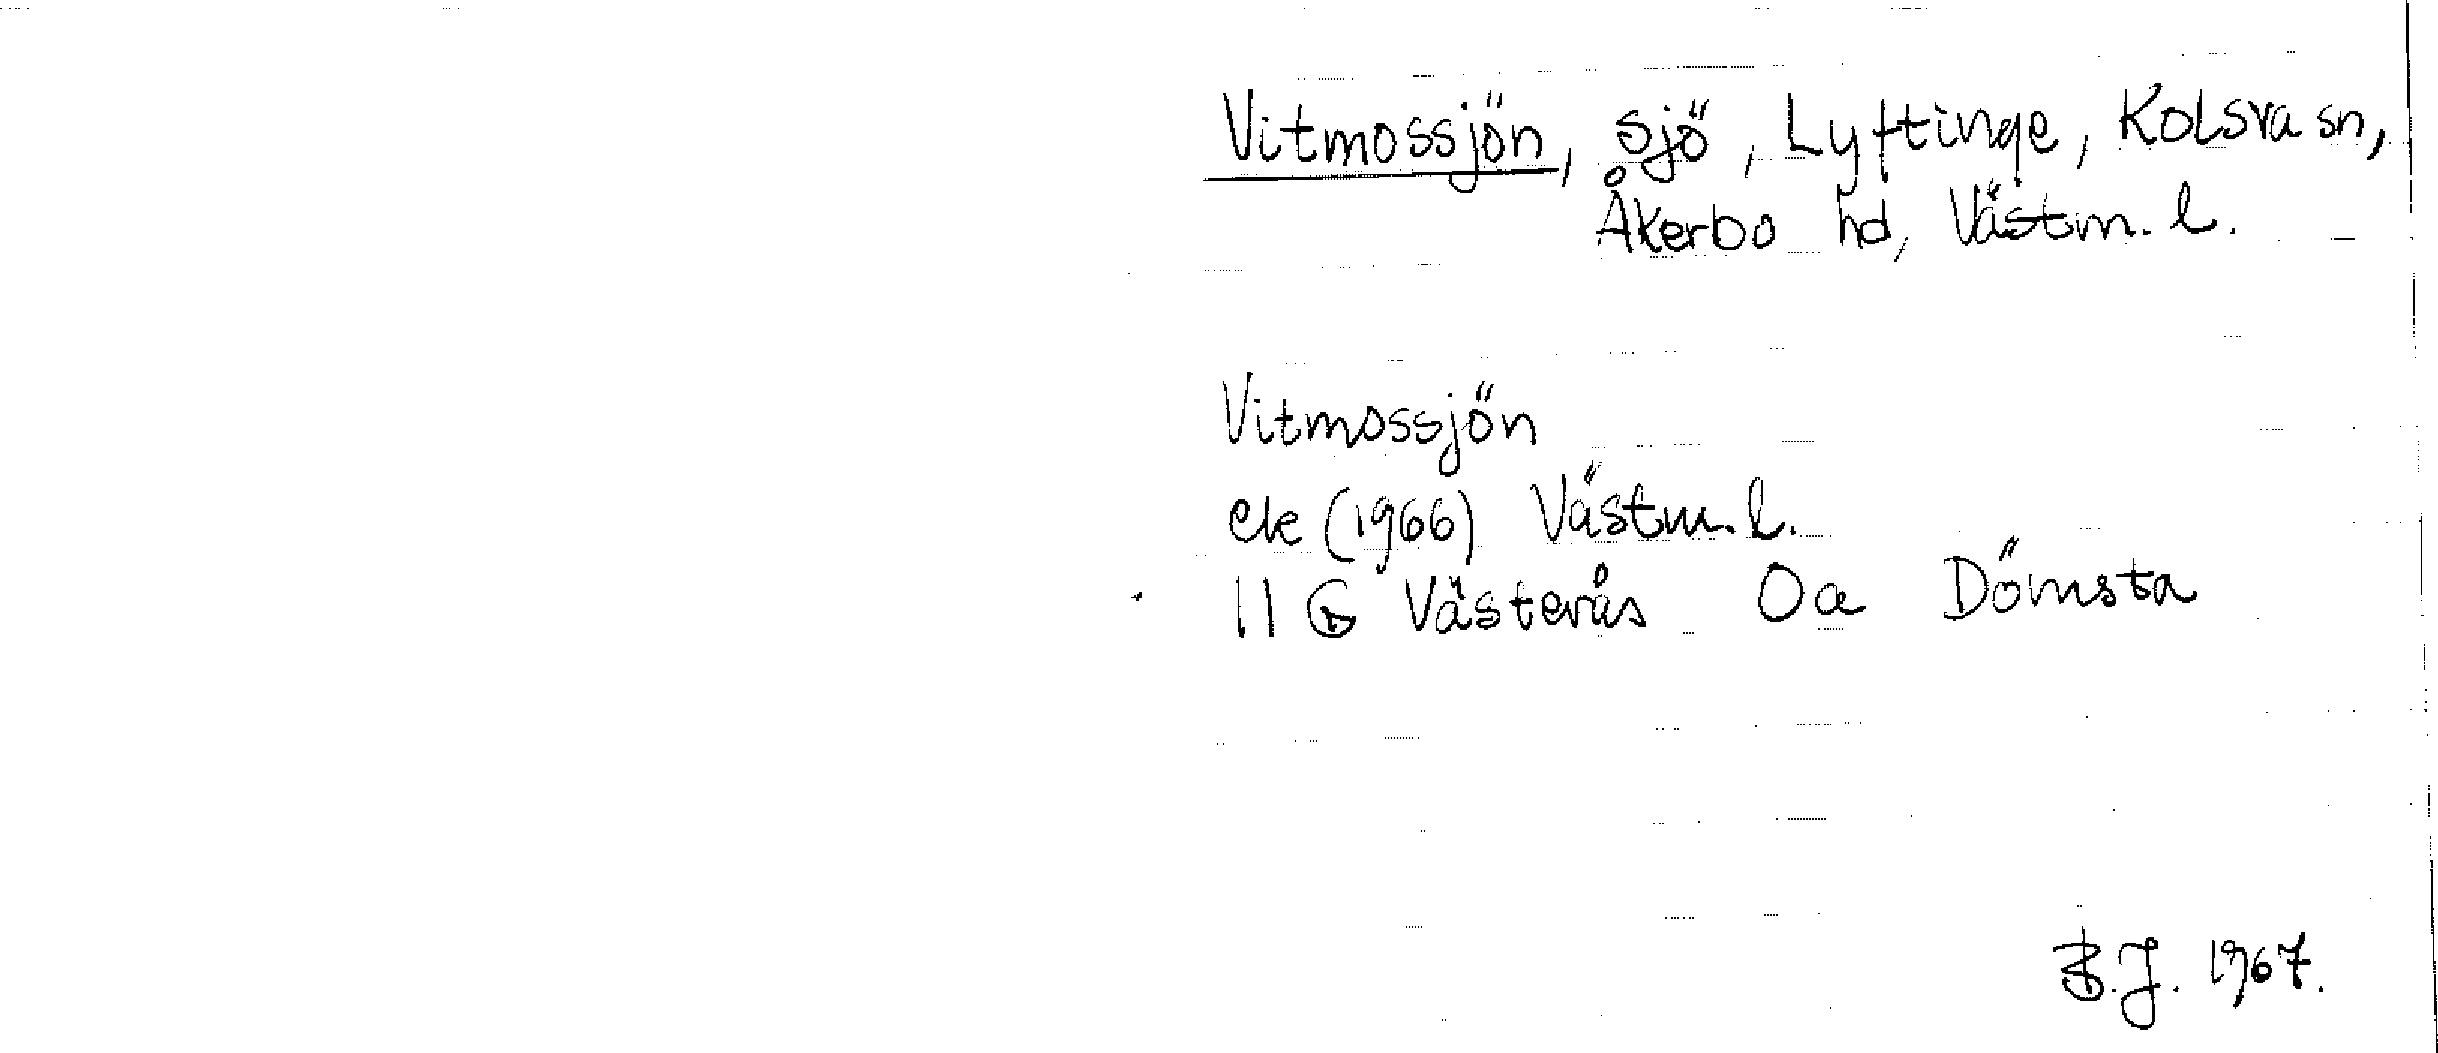 Vitmossjön, sjö, Lyftinge, Kolsva sn,
Åkerbo hd, Västm. l.
Vitmossjön
ek (1966) Västm. l.
11 G Västerås 0a Dömsta
B.J. 1967.